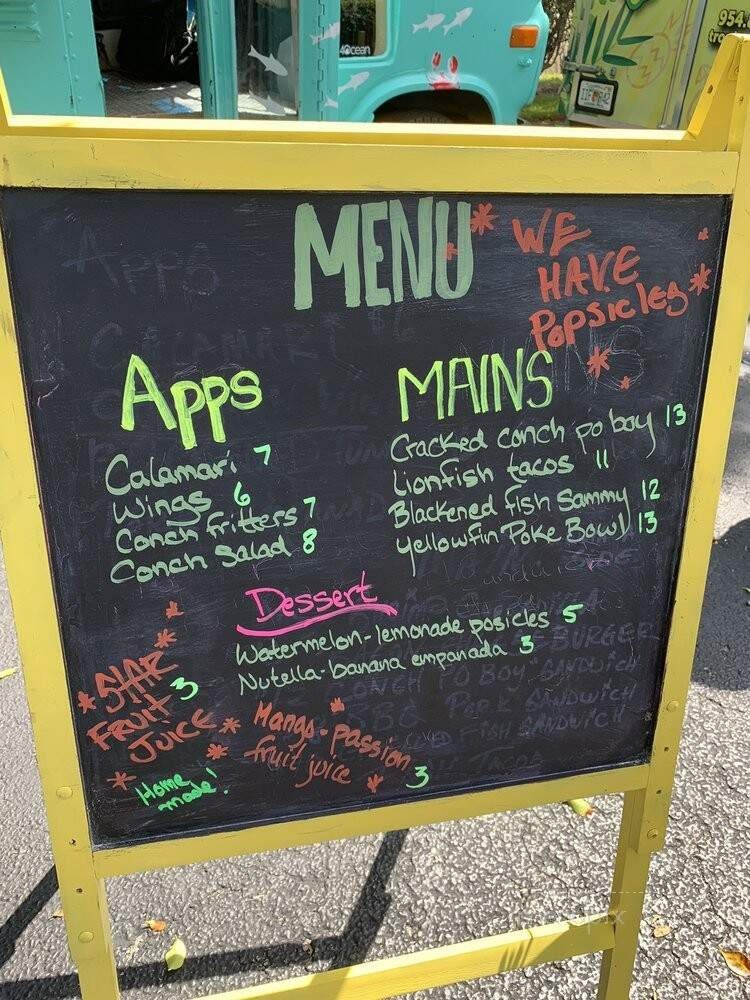 4Ocean
954.
MENU
WE
HAVE
Popsicles
Apps
Calamari 7
Wings 6
Conch fritters 7
Conch Salad 8
MAINS
Cracked conch po boy 13
lionfish tacos 11
Blackened fish Sammy 12
Yellowfin Poke Bowl 13
Dessert
Watermelon-lemonade posicles 5
Nutella-banana empanada 3
STAR
FRUIT 3
JUICE
Home
made!
Mango-passion
fruit juice 3